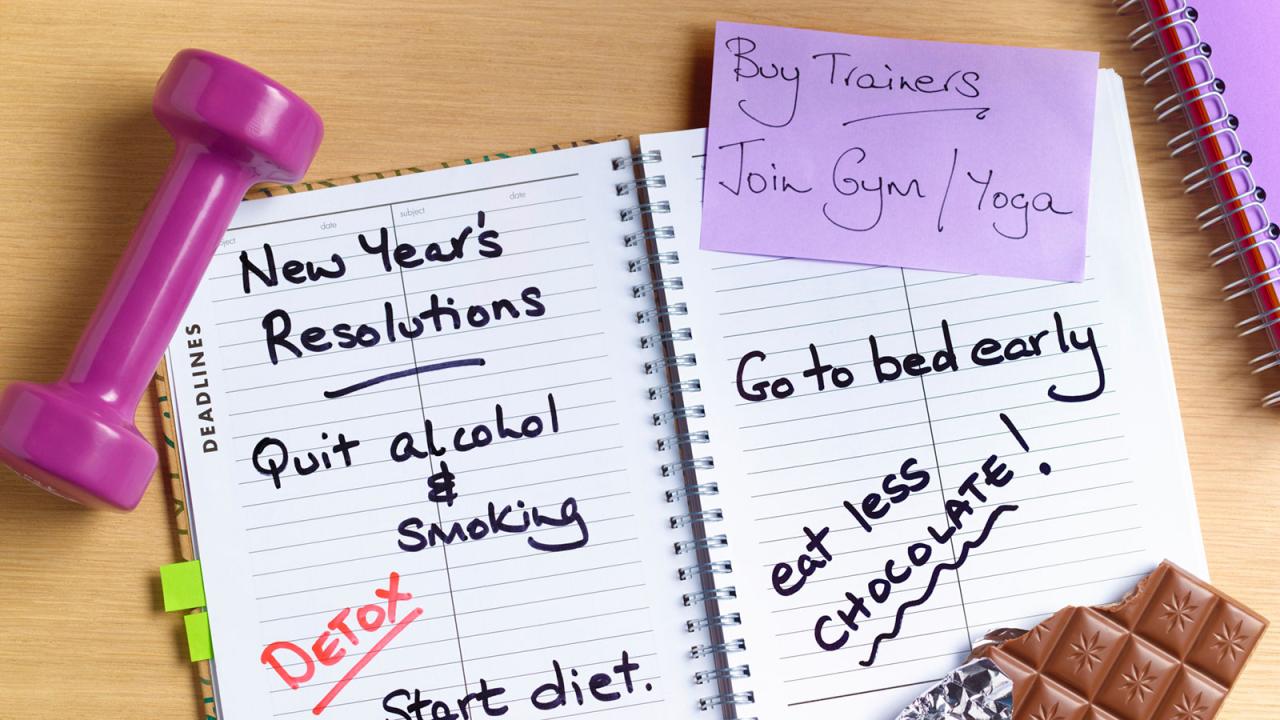 Buy Trainers
Join Gym / Yoga
subject
date
subject
date
DEADLINES
New Year's
Resolutions
Quit alcohol
&
smoking
DETOX
Start diet.
Go to bed early
eat less
CHOCOLATE!